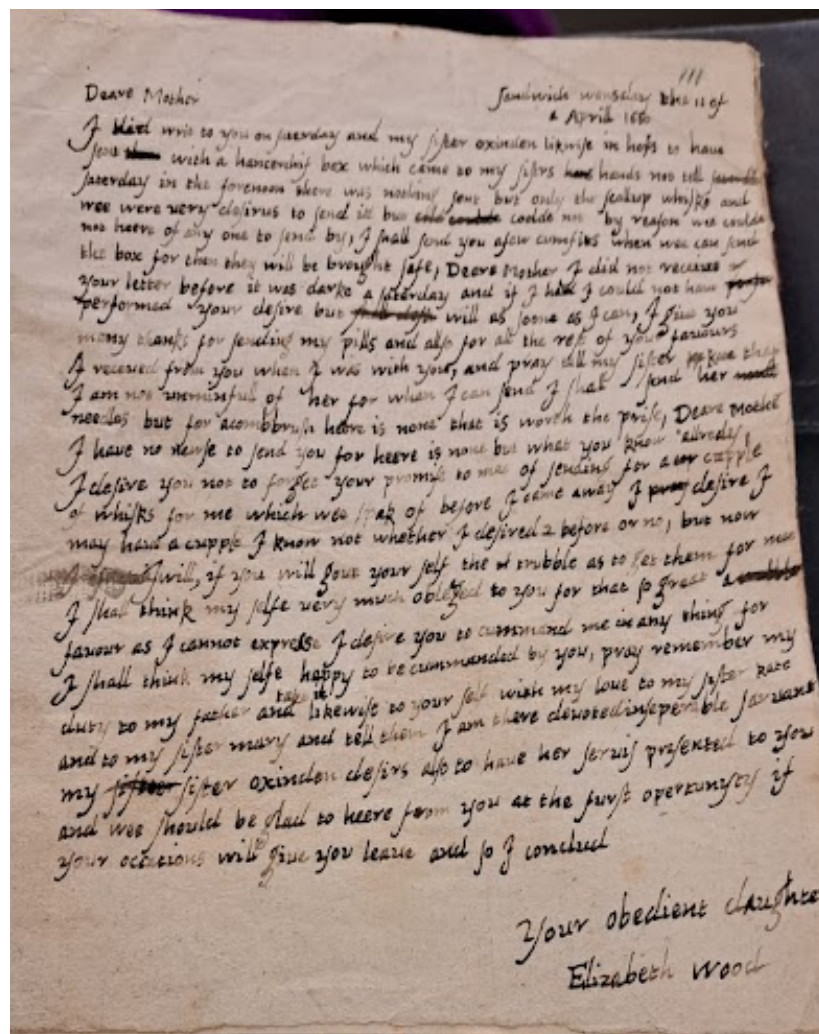 111
Deare Mother
Sandwich wensday the 11 of
April 1660
I had writ to you on saterday and my sister oxinden likwise in hops to have
sent with a hancerchif box which came to my sistrs hands not tell
saterday in the forenoon there was nothing sent but only the scallup whisks and
wee were very desirus to send it but coulde not by reason we coulde
not heere of any one to send by, I shall send you afew cumfits when wee can send
the box for then they will be brought safe, Deare Mother I did not receive
your letter before it was darke a saterday and if I had I could not have
performed your desire but will as soone as I can, I give you
many thanks for sending my pills and also for all the rest of your favours
I received from you when I was with you, and pray tell my sister that
I am not unminful of her for when I can send I shall send her
needls but for acombbrush heere is none that is worth the prise, Deare Mother
I have no nuse to send you for heere is none but what you know allredy,
I desire you not to forget your promis to mee of sending for a cupple
of whisks for me which wee spak of before I came away I desire I
may have a cupple I know not whether I desired 2 before or no, but now
I will, if you will give your self the trubble as to get them for mee
I shall think my selfe very much obleged to you for that so great a
favour as I cannot express I desire you to cummand me in any thing for
I shall think my selfe happy to be cummanded by you, pray remember my
duty to my father and take it likewise to your self with my love to my sister kate
and to my sister mary and tell them I am there devoted inseperable sarvant
my sister oxinden desirs also to have her servis presented to you
and wee should be glad to heere from you at the furst opertunity if
your occacions will give you leave and so I conclud
Your obedient daughte
Elizabeth Wood